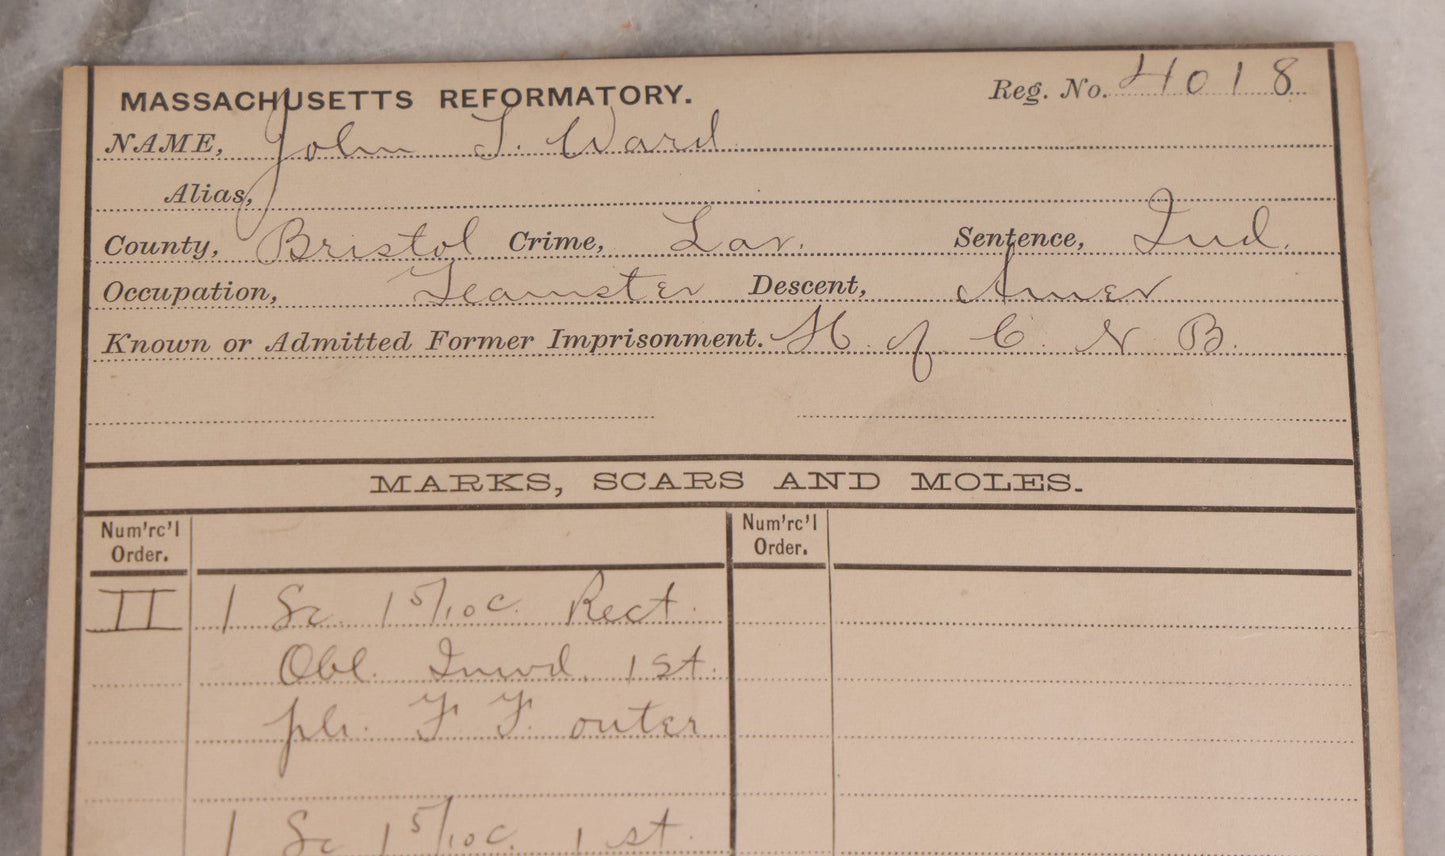 MASSACHUSETTS REFORMATORY. Reg. No. 4018
NAME, John T. Ward
Alias,
County, Bristol Crime, Lar. Sentence, Ind.
Occupation, Teamster Descent, Amer
Known or Admitted Former Imprisonment. H. of C. N B.
MARKS, SCARS AND MOLES.
Num'rc'l Order. Num'rc'l Order.
II 1 Sc. 1 5/10 c. Rect.
Obl. Inwd. 1 st.
plx. F. F. outer
1 Sc 1 5/10 c. 1 st.